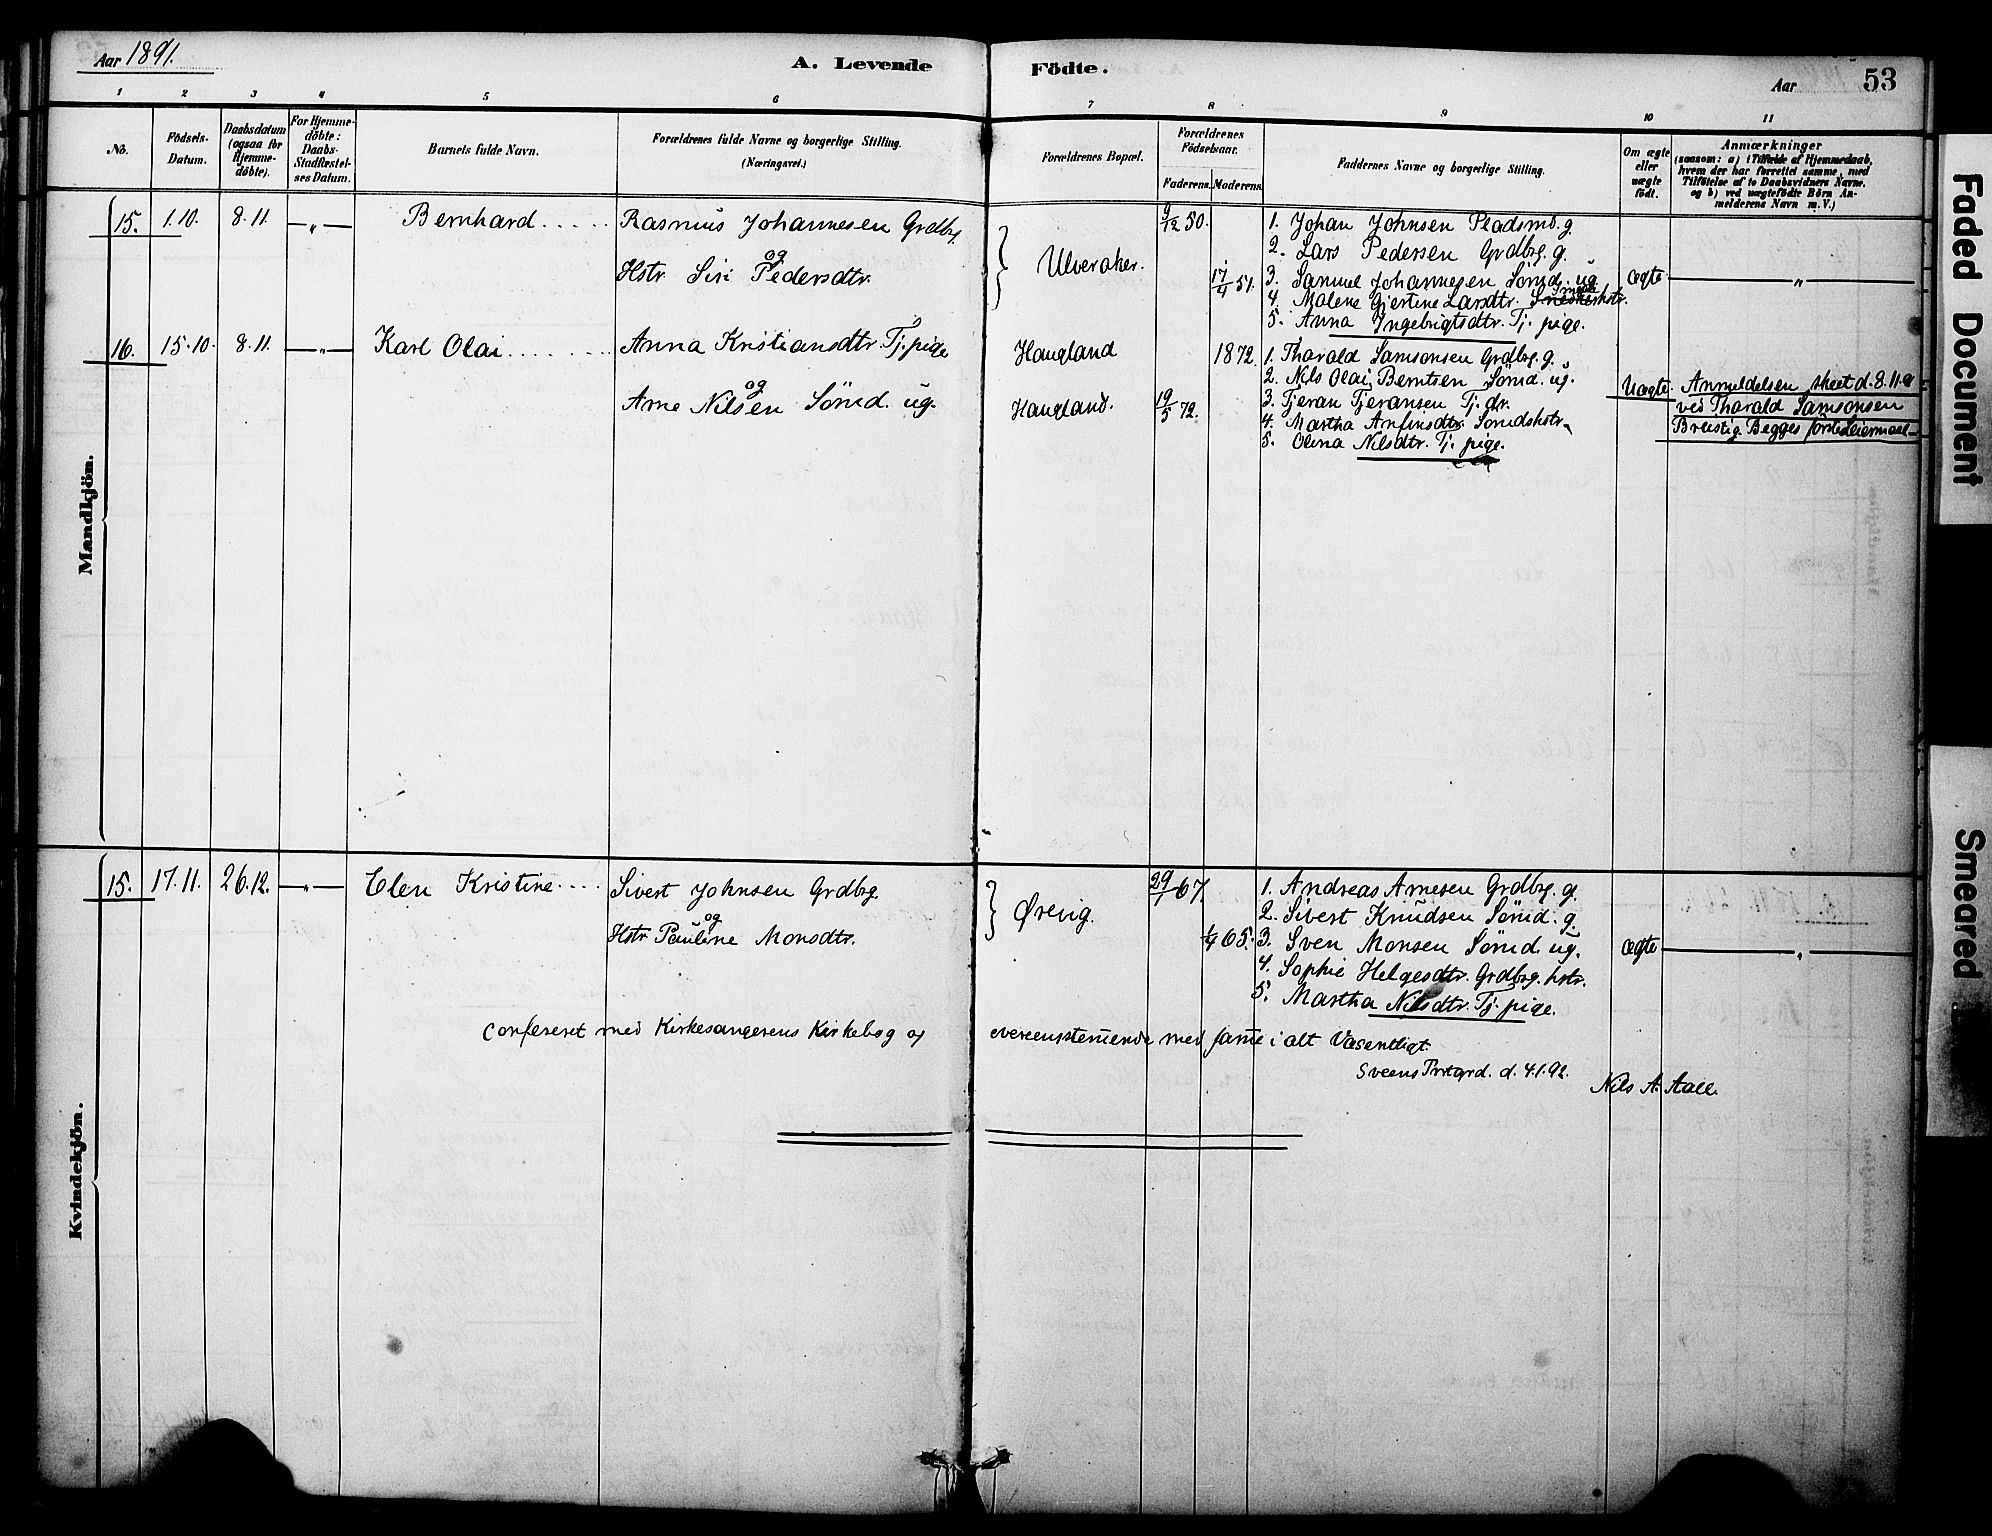 Aar 1891.
A. Levende Födte.
Aar 53
1 2 3 4 5 6 7 8 9 10 11
No.
Födsels-Datum.
Daabsdatum (ogsaa for Hjemme-döbte).
For Hjemme-döbte: Daabs-Stadfæstel-ses Datum.
Barnets fulde Navn.
Forældrenes fulde Navne og borgerlige Stilling.
(Næringsvei.)
Forældrenes Bopæl.
Forældrenes Födselsaar.
Faderens. Moderens.
Faddernes Navne og borgerlige Stilling.
Om ægte eller uægte födt.
Anmærkninger
(saasom: a) i Tilfælde af Hjemmedaab,
hvem der har forrettet samme, med
Tilföielse af to Daabsvidners Navne,
og b) ved uægtefödte Börn An-
melderens Navn m. V.)
Mandkjön.
15. 1.10. 8.11. —„— Bernhard ..... Rasmus Johannesen Grdbg.
og
Hstr. Siri Pedersdtr.
Ulveraker.
9/12 50.
17/4 51.
1. Johan Johnsen Pladsmd. g.
2. Lars Pedersen Grdbg. g.
3. Samuel Johannesen Sömd. ug
4. Malene Gjertine Larsdtr.
5. Anna Ingebrigtsdtr. Tj. pige.
ægte —„—
16. 15.10. 8.11. —„— Karl Olai ....... Anna Kristiansdtr. Tj. pige
og
Arne Nilsen Sömd. ug.
Haugland
Haugland.
1872.
19/5 72.
1. Tharald Samsonsen Grdbg. g.
2. Nils Olai Berntsen Sömd. ug.
3. Tjeran Tjeransen Tj. dr.
4. Martha Anfinsdtr. Sömdshstr.
5. Olina Nilsdtr. Tj. pige.
Uægte. Anmeldelsen skeet d. 8.11.
ved Tharald Samsonsen
Breistig. Begges förste Leiermaal
Kvindekjön.
15. 17.11. 26.12. —„— Elen Kristine .... Sivert Johnsen Grdbg.
og
Hstr Pauline Monsdtr.
Ørevig.
29/1 67.
1/4 65.
1. Andreas Arnesen Grdbg. g.
2. Sivert Knudsen Sömd. g.
3. Sven Monsen Sömd. ug.
4. Sophie Helgesdtr. Grdbg. hstr.
5. Martha Nilsdtr. Tj. pige.
ægte —„—
Confereret med Kirkesangerens Kirkebog og overeensstemende med same i alt Væsentligt.
Sveens Prstgrd. d. 4.1.92.
Nils A. Aall.
Faded Document
Smeared